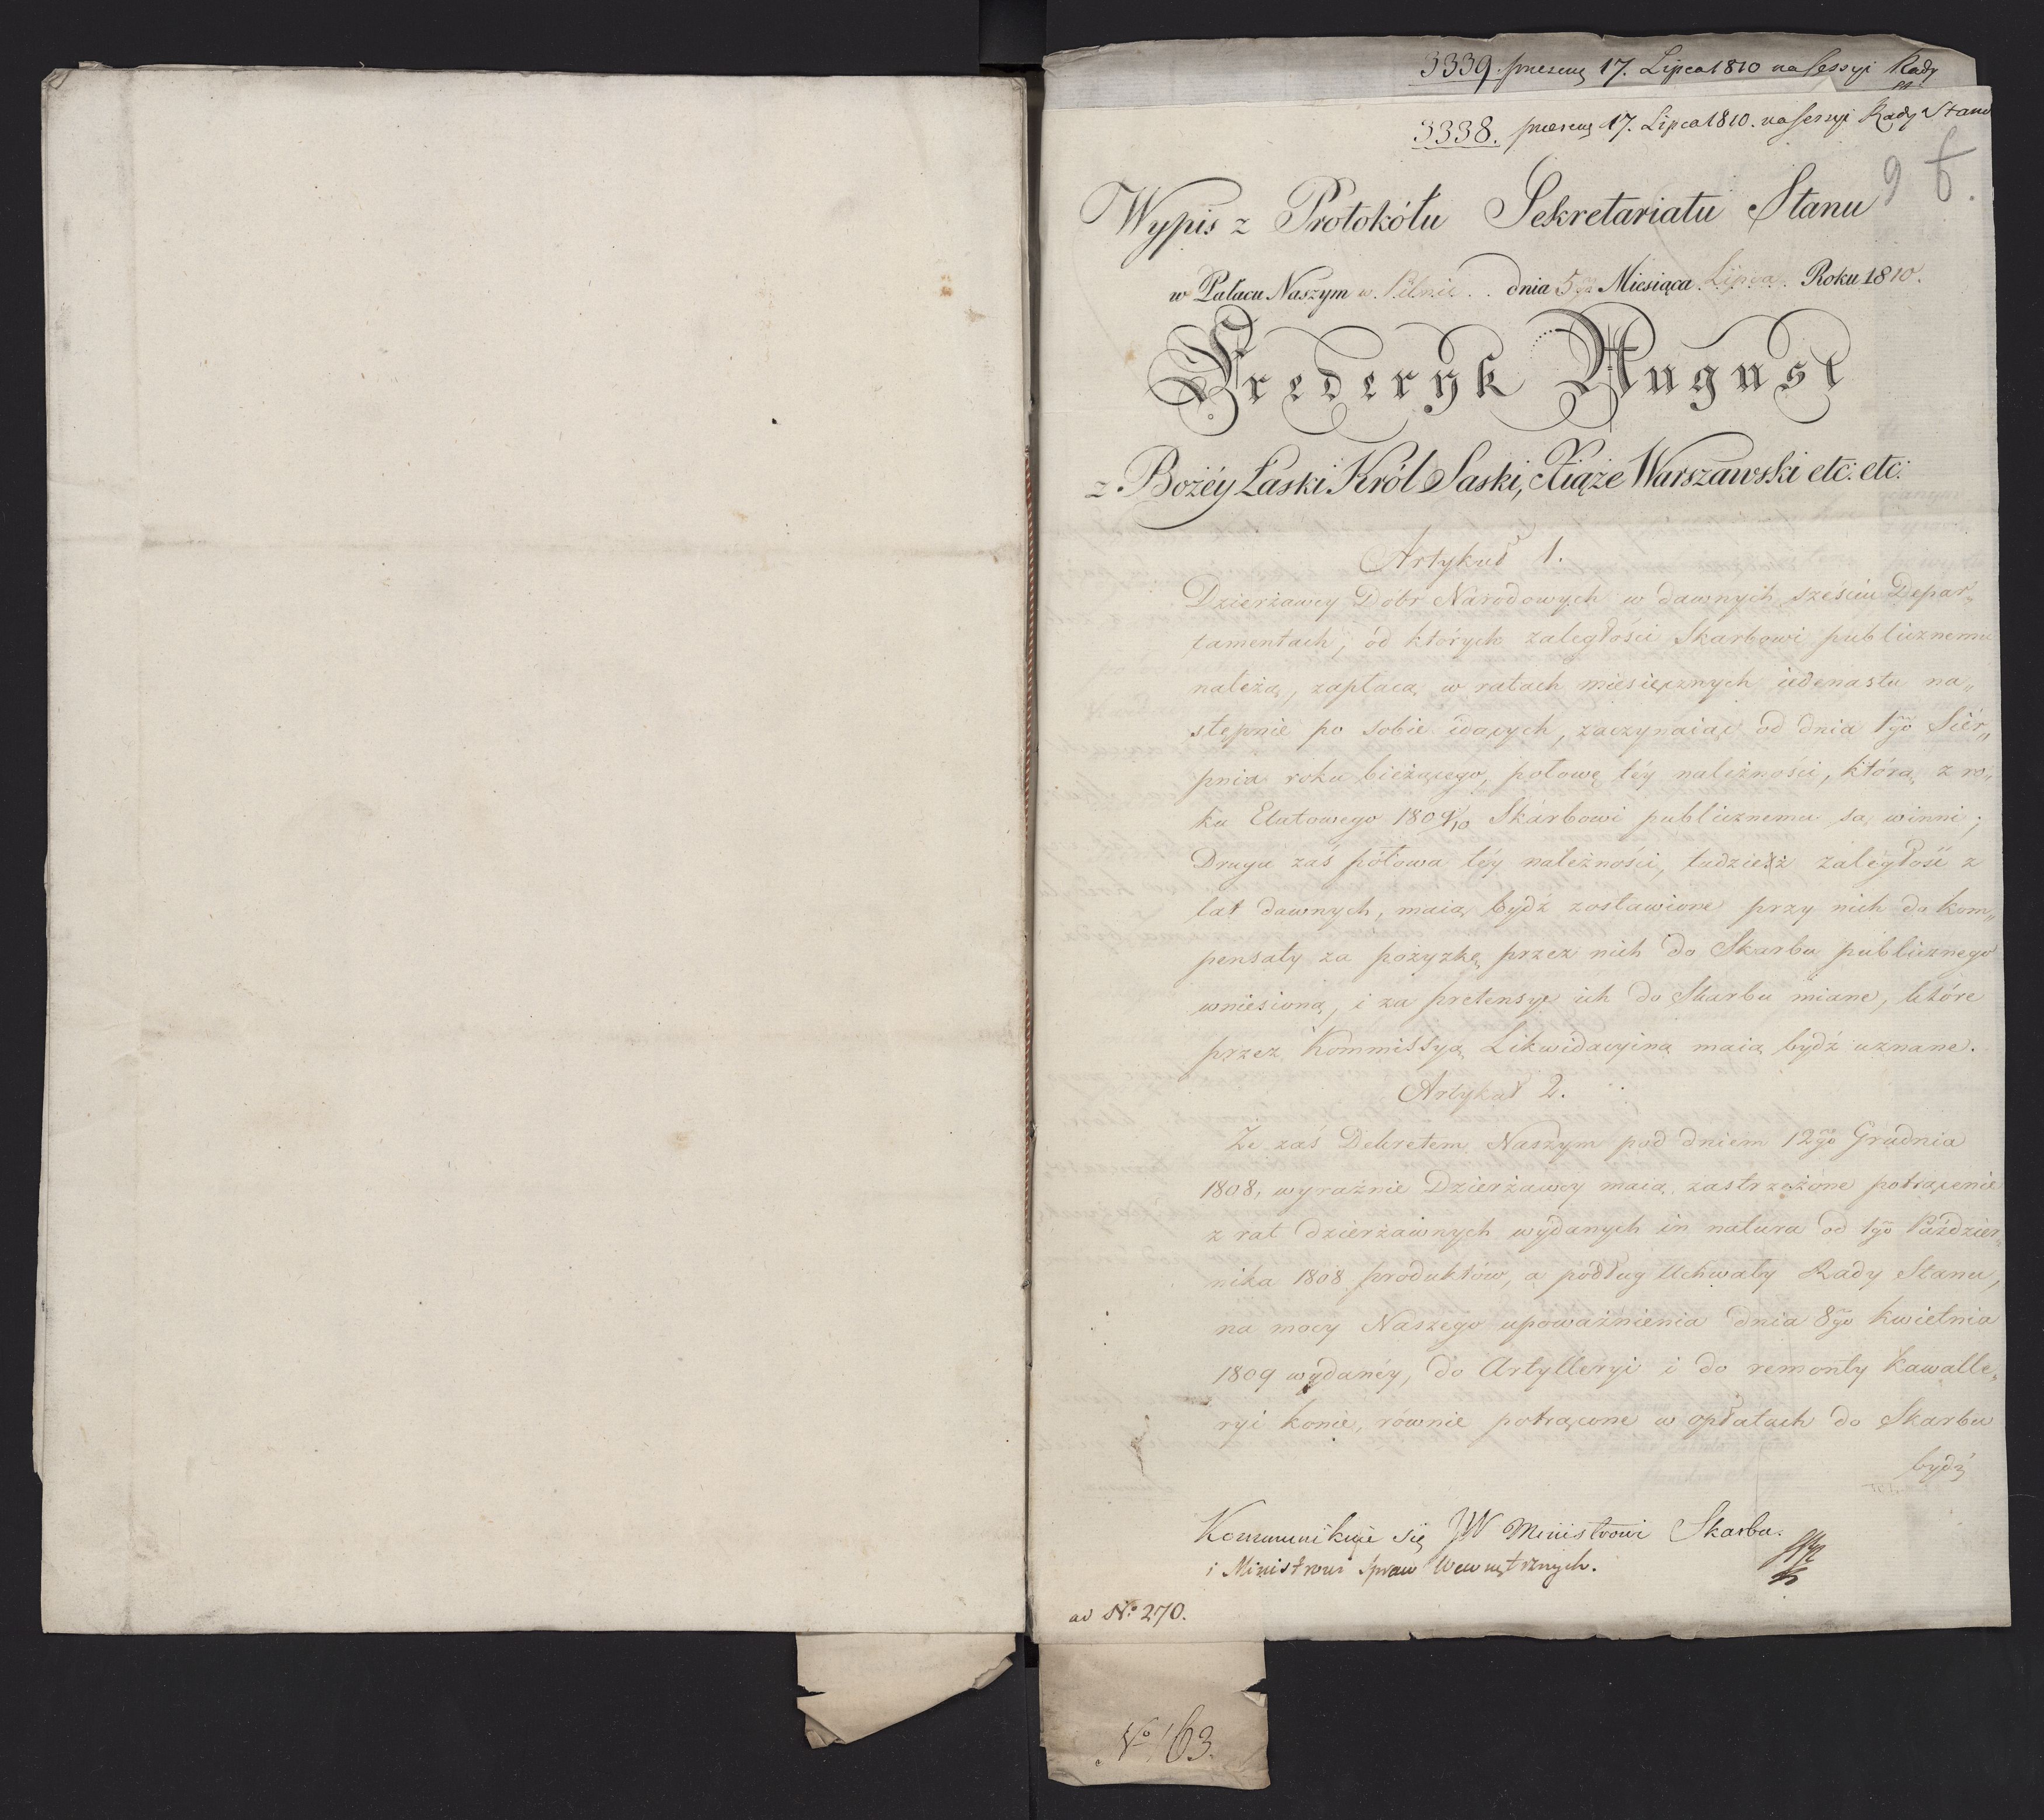 3339. præsens 17. Lipca 1810 na sessyi Rady
3338. præsens 17. Lipca 1810. na sessyi Rady Stanu
9
Wypis z Protokółu Sekretariatu Stanu
w Pałacu Naszym w. Pilnie . . dnia 5go Miesiąca Lipca Roku 1810.
Frederyk August
z Bożéy Łaski Król Saski, Xiąże Warszawski etc: etc:
Artykuł 1.
Dzierżawcy Dobr Narodowych w dawnych sześciu Depar„
tamentach, od których zaległości Skarbowi publicznemu
należą, zapłacą w ratach miesięcznych iedenastu na„
stępnie po sobie idących, zaczynaiąc od dnia 1go Sier„
pnia roku bieżącego, połowę téy należności, którą z ro„
ku Etatowego 1809/10 Skarbowi publicznemu są winni;
Druga zaś połowa téy należności, tudzież zaległość z
lat dawnych, maią bydź zostawione przy nich do kom„
pensaty za pożyczkę przez nich do Skarbu publicznego
wniesioną, i za pretensye ich do Skarbu miane, które
przez Kommissyą Likwidacyiną maią bydź uznane.
Artykuł 2.
Że zaś Dekretem Naszym pod dniem 12go Grudnia
1808, wyraźnie Dzierżawcy maią zastrzeżone potrącenie
z rat dzierżawnych wydanych in natura od 1go Paździer„
nika 1808 produktów, a podług Uchwały Rady Stanu,
na mocy Naszego upoważnienia dnia 8go Kwietnia
1809 wydanéy, do Artylleryi i do remonty kawalle„
ryi konie, równie potrącone w opłatach do Skarbu
bydź
Kommunikuie się JW Ministrowi Skarbu.
i Ministrowi Spraw Wewnętrznych.
ad No 270.
No 163.